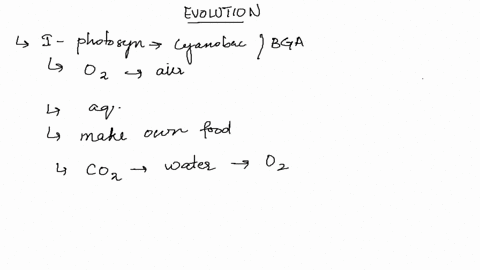 EVOLUTION
↳ I - photosyn → Cyanobac / BGA
↳ O2 → air
↳ aq.
↳ make own food
↳ CO2 → water → O2